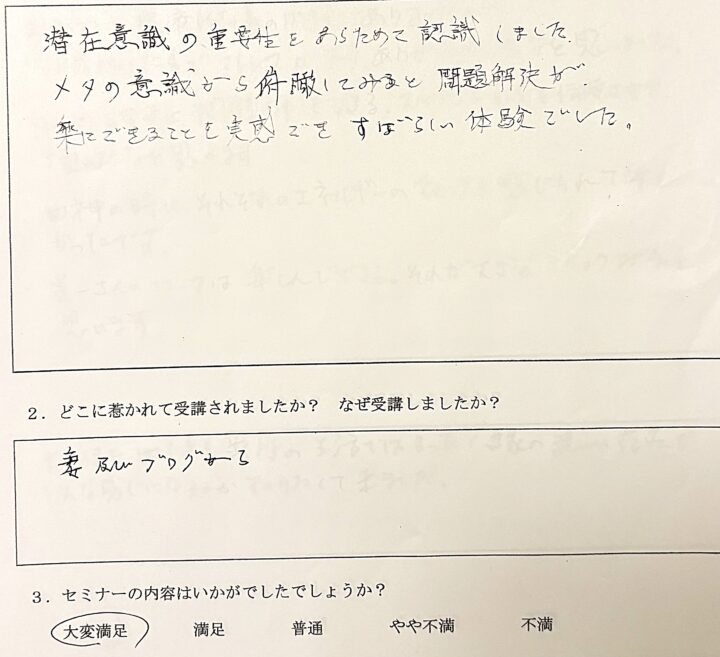 潜在意識の重要性をあらためて認識しました
メタの意識から俯瞰してみると問題解決が
楽にできることを実感でき すばらしい体験でした。
2．どこに惹かれて受講されましたか？　なぜ受講しましたか？
妻及びブログから
3．セミナーの内容はいかがでしたでしょうか？
大変満足　満足　普通　やや不満　不満